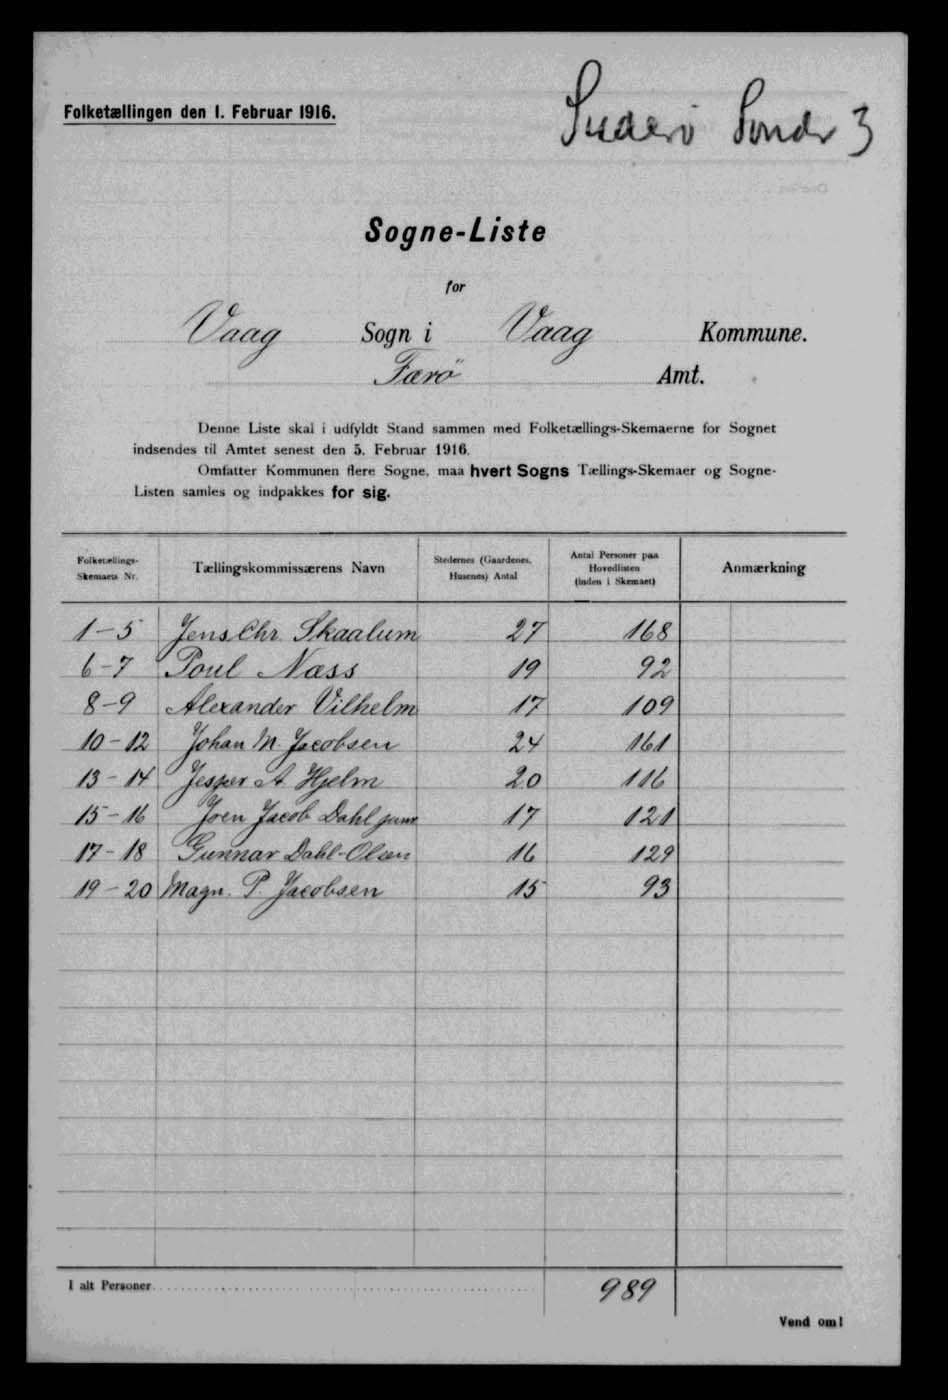 Folketællingen den 1. Februar 1916.
Suderø Sondr 3
Sogne-Liste
for
Vaag Sogn i Vaag Kommune.
Færö Amt.
Denne Liste skal i udfyldt Stand sammen med Folketællings-Skemaerne for Sognet
indsendes til Amtet senest den 5. Februar 1916.
Omfatter Kommunen flere Sogne, maa hvert Sogns Tællings-Skemaer og Sogne-
Listen samles og indpakkes for sig.
Folketællings-Skemaets Nr. Tællingskommissærens Navn Stedernes (Gaardenes, Husenes) Antal Antal Personer paa Hovedlisten (inden i Skemaet) Anmærkning
1-5 Jens Chr. Skaalum 27 168
6-7 Poul Næss 19 92
8-9 Alexander Vilhelm 17 109
10-12 Johan M. Jacobsen 24 161
13-14 Jesper A. Hjelm 20 116
15-16 Joen Jacob Dahl junr 17 121
17-18 Gunnar Dahl-Olsen 16 129
19-20 Magn. P. Jacobsen 15 93
I alt Personer 989
Vend om!